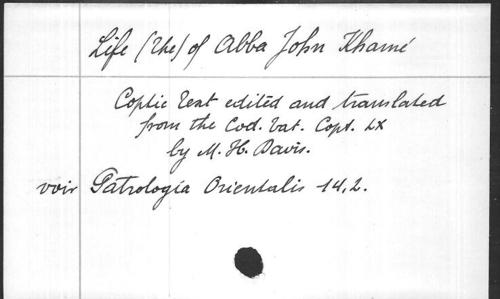 Life (The) of Abba John Khamé
Coptic Text edited and translated
from the Cod. Vat. Copt. LX
by M. H. Davis.
voir Patrologia Orientalis 14,2.